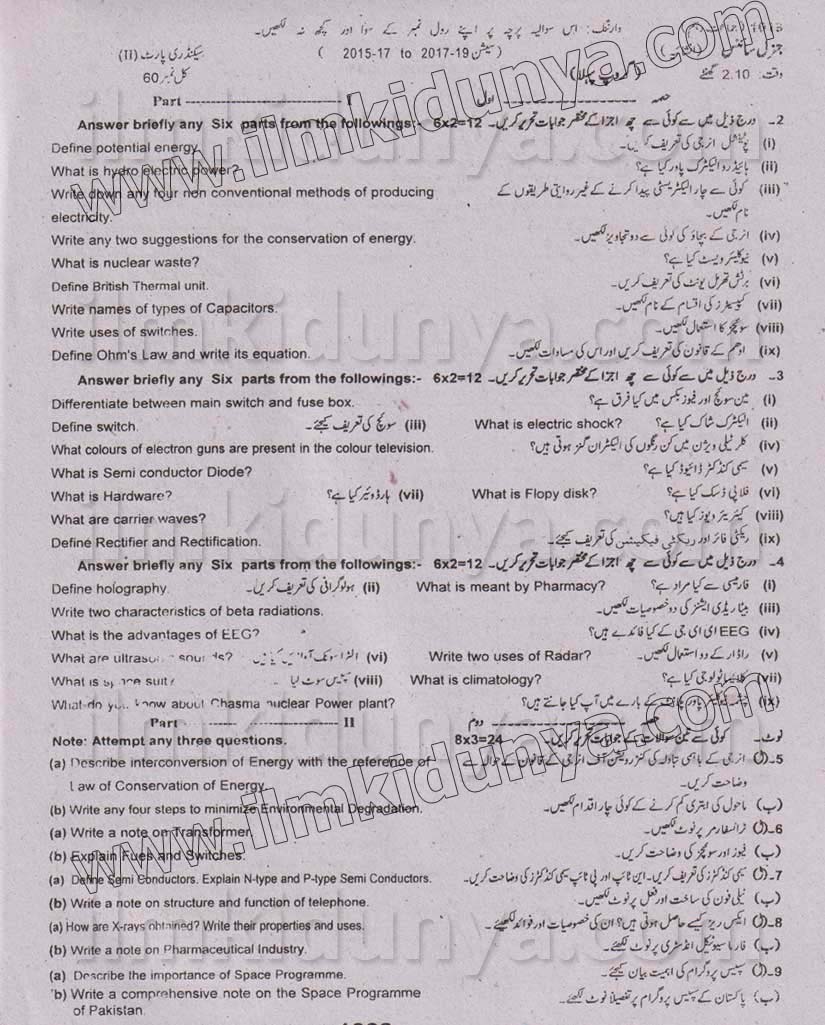 وارننگ: اس سوالیہ پرچہ پر اپنے رول نمبر کے سوا اور کچھ نہ لکھیں۔
جنرل سائنس (سیشن 2015-17 to 2017-19) سیکنڈری پارٹ (II)
وقت: 2.10 گھنٹے (گروپ پہلا) کل نمبر 60
Part --- I حصہ --- اول
Answer briefly any Six parts from the followings:- 6x2=12 2۔ درج ذیل میں سے کوئی سے چھ اجزا کے مختصر جوابات تحریر کریں۔
Define potential energy. (i) پوٹینشل انرجی کی تعریف کریں۔
What is hydro electric power? (ii) ہائیڈرو الیکٹرک پاور کیا ہے؟
Write down any four non conventional methods of producing (iii) کوئی سے چار الیکٹریسٹی پیدا کرنے کے غیر روایتی طریقوں کے
electricity. نام لکھیں۔
Write any two suggestions for the conservation of energy. (iv) انرجی کے بچاؤ کی کوئی سے دو تجاویز لکھیں۔
What is nuclear waste? (v) نیوکلیئر ویسٹ کیا ہے؟
Define British Thermal unit. (vi) برٹش تھرمل یونٹ کی تعریف کریں۔
Write names of types of Capacitors. (vii) کپیسٹرز کی اقسام کے نام لکھیں۔
Write uses of switches. (viii) سوئچز کا استعمال لکھیں۔
Define Ohm's Law and write its equation. (ix) اوھم کے قانون کی تعریف کریں اور اس کی مساوات لکھیں۔
Answer briefly any Six parts from the followings:- 6x2=12 3۔ درج ذیل میں سے کوئی سے چھ اجزا کے مختصر جوابات تحریر کریں۔
Differentiate between main switch and fuse box. (i) مین سوئچ اور فیوز بکس میں کیا فرق ہے؟
Define switch. (iii) سوئچ کی تعریف کیجئے۔ What is electric shock? (ii) الیکٹرک شاک کیا ہے؟
What colours of electron guns are present in the colour television. (iv) کلر ٹیلی ویژن میں کن رنگوں کی الیکٹران گنز ہوتی ہیں؟
What is Semi conductor Diode? (v) سیمی کنڈکٹر ڈائیوڈ کیا ہے؟
What is Hardware? (vii) ہارڈ وئیر کیا ہے؟ What is Flopy disk? (vi) فلاپی ڈسک کیا ہے؟
What are carrier waves? (viii) کیریئر ویوز کیا ہیں؟
Define Rectifier and Rectification. (ix) ریکٹی فائر اور ریکٹی فیکیشن کی تعریف کیجئے۔
Answer briefly any Six parts from the followings:- 6x2=12 4۔ درج ذیل میں سے کوئی سے چھ اجزا کے مختصر جوابات تحریر کریں۔
Define holography. (ii) ہولوگرافی کی تعریف کریں۔ What is meant by Pharmacy? (i) فارمیسی سے کیا مراد ہے؟
Write two characteristics of beta radiations. (iii) بیٹا ریڈی ایشنز کی دو خصوصیات لکھیں۔
What is the advantages of EEG? (iv) EEG ای ای جی کے کیا فائدے ہیں؟
What are ultrasonic sounds? (vi) الٹرا سونک آوازیں کیا ہیں Write two uses of Radar? (v) راڈار کے دو استعمال لکھیں۔
What is space suit? (viii) سپیس سوٹ کیا What is climatology? (vii) کلائمیٹولوجی کیا ہے؟
What do you know about Chasma nuclear Power plant? (ix) چشمہ نیوکلیئر پاور پلانٹ کے بارے میں آپ کیا جانتے ہیں؟
Part --- II حصہ --- دوم
Note: Attempt any three questions. 8x3=24 نوٹ۔ کوئی سے تین سوالات کے جوابات تحریر کریں۔
(a) Describe interconversion of Energy with the reference of 5۔(ا) انرجی کے باہمی تبادلہ کی کنزرویشن آف انرجی کے قانون کے حوالہ سے
Law of Conservation of Energy. وضاحت کریں۔
(b) Write any four steps to minimize Environmental Degradation. (ب) ماحول کی ابتری کم کرنے کے کوئی چار اقدام لکھیں۔
(a) Write a note on Transformer. 6۔(ا) ٹرانسفارمر پر نوٹ لکھیں۔
(b) Explain Fues and Switches. (ب) فیوز اور سوئچز کی وضاحت کریں۔
(a) Define Semi Conductors. Explain N-type and P-type Semi Conductors. 7۔(ا) سیمی کنڈکٹرز کی تعریف کریں۔ این ٹائپ اور پی ٹائپ سیمی کنڈکٹرز کی وضاحت کریں۔
(b) Write a note on structure and function of telephone. (ب) ٹیلی فون کی ساخت اور فعل پر نوٹ لکھیں۔
(a) How are X-rays obtained? Write their properties and uses. 8۔(ا) ایکس ریز کیسے حاصل ہوتی ہیں؟ ان کی خصوصیات اور فوائد لکھیئے۔
(b) Write a note on Pharmaceutical Industry. (ب) فارماسیوٹیکل انڈسٹری پر نوٹ لکھئے۔
(a) Describe the importance of Space Programme. 9۔(ا) سپیس پروگرام کی اہمیت بیان کیجئے۔
(b) Write a comprehensive note on the Space Programme (ب) پاکستان کے سپیس پروگرام پر تفصیلاً نوٹ لکھئے۔
of Pakistan.
www.ilmkidunya.com
www.ilmkidunya.com
ilmkidunya.com
ilmkidunya.com
ilmkidunya.com
ilmkidunya.com
ilmkidunya.com